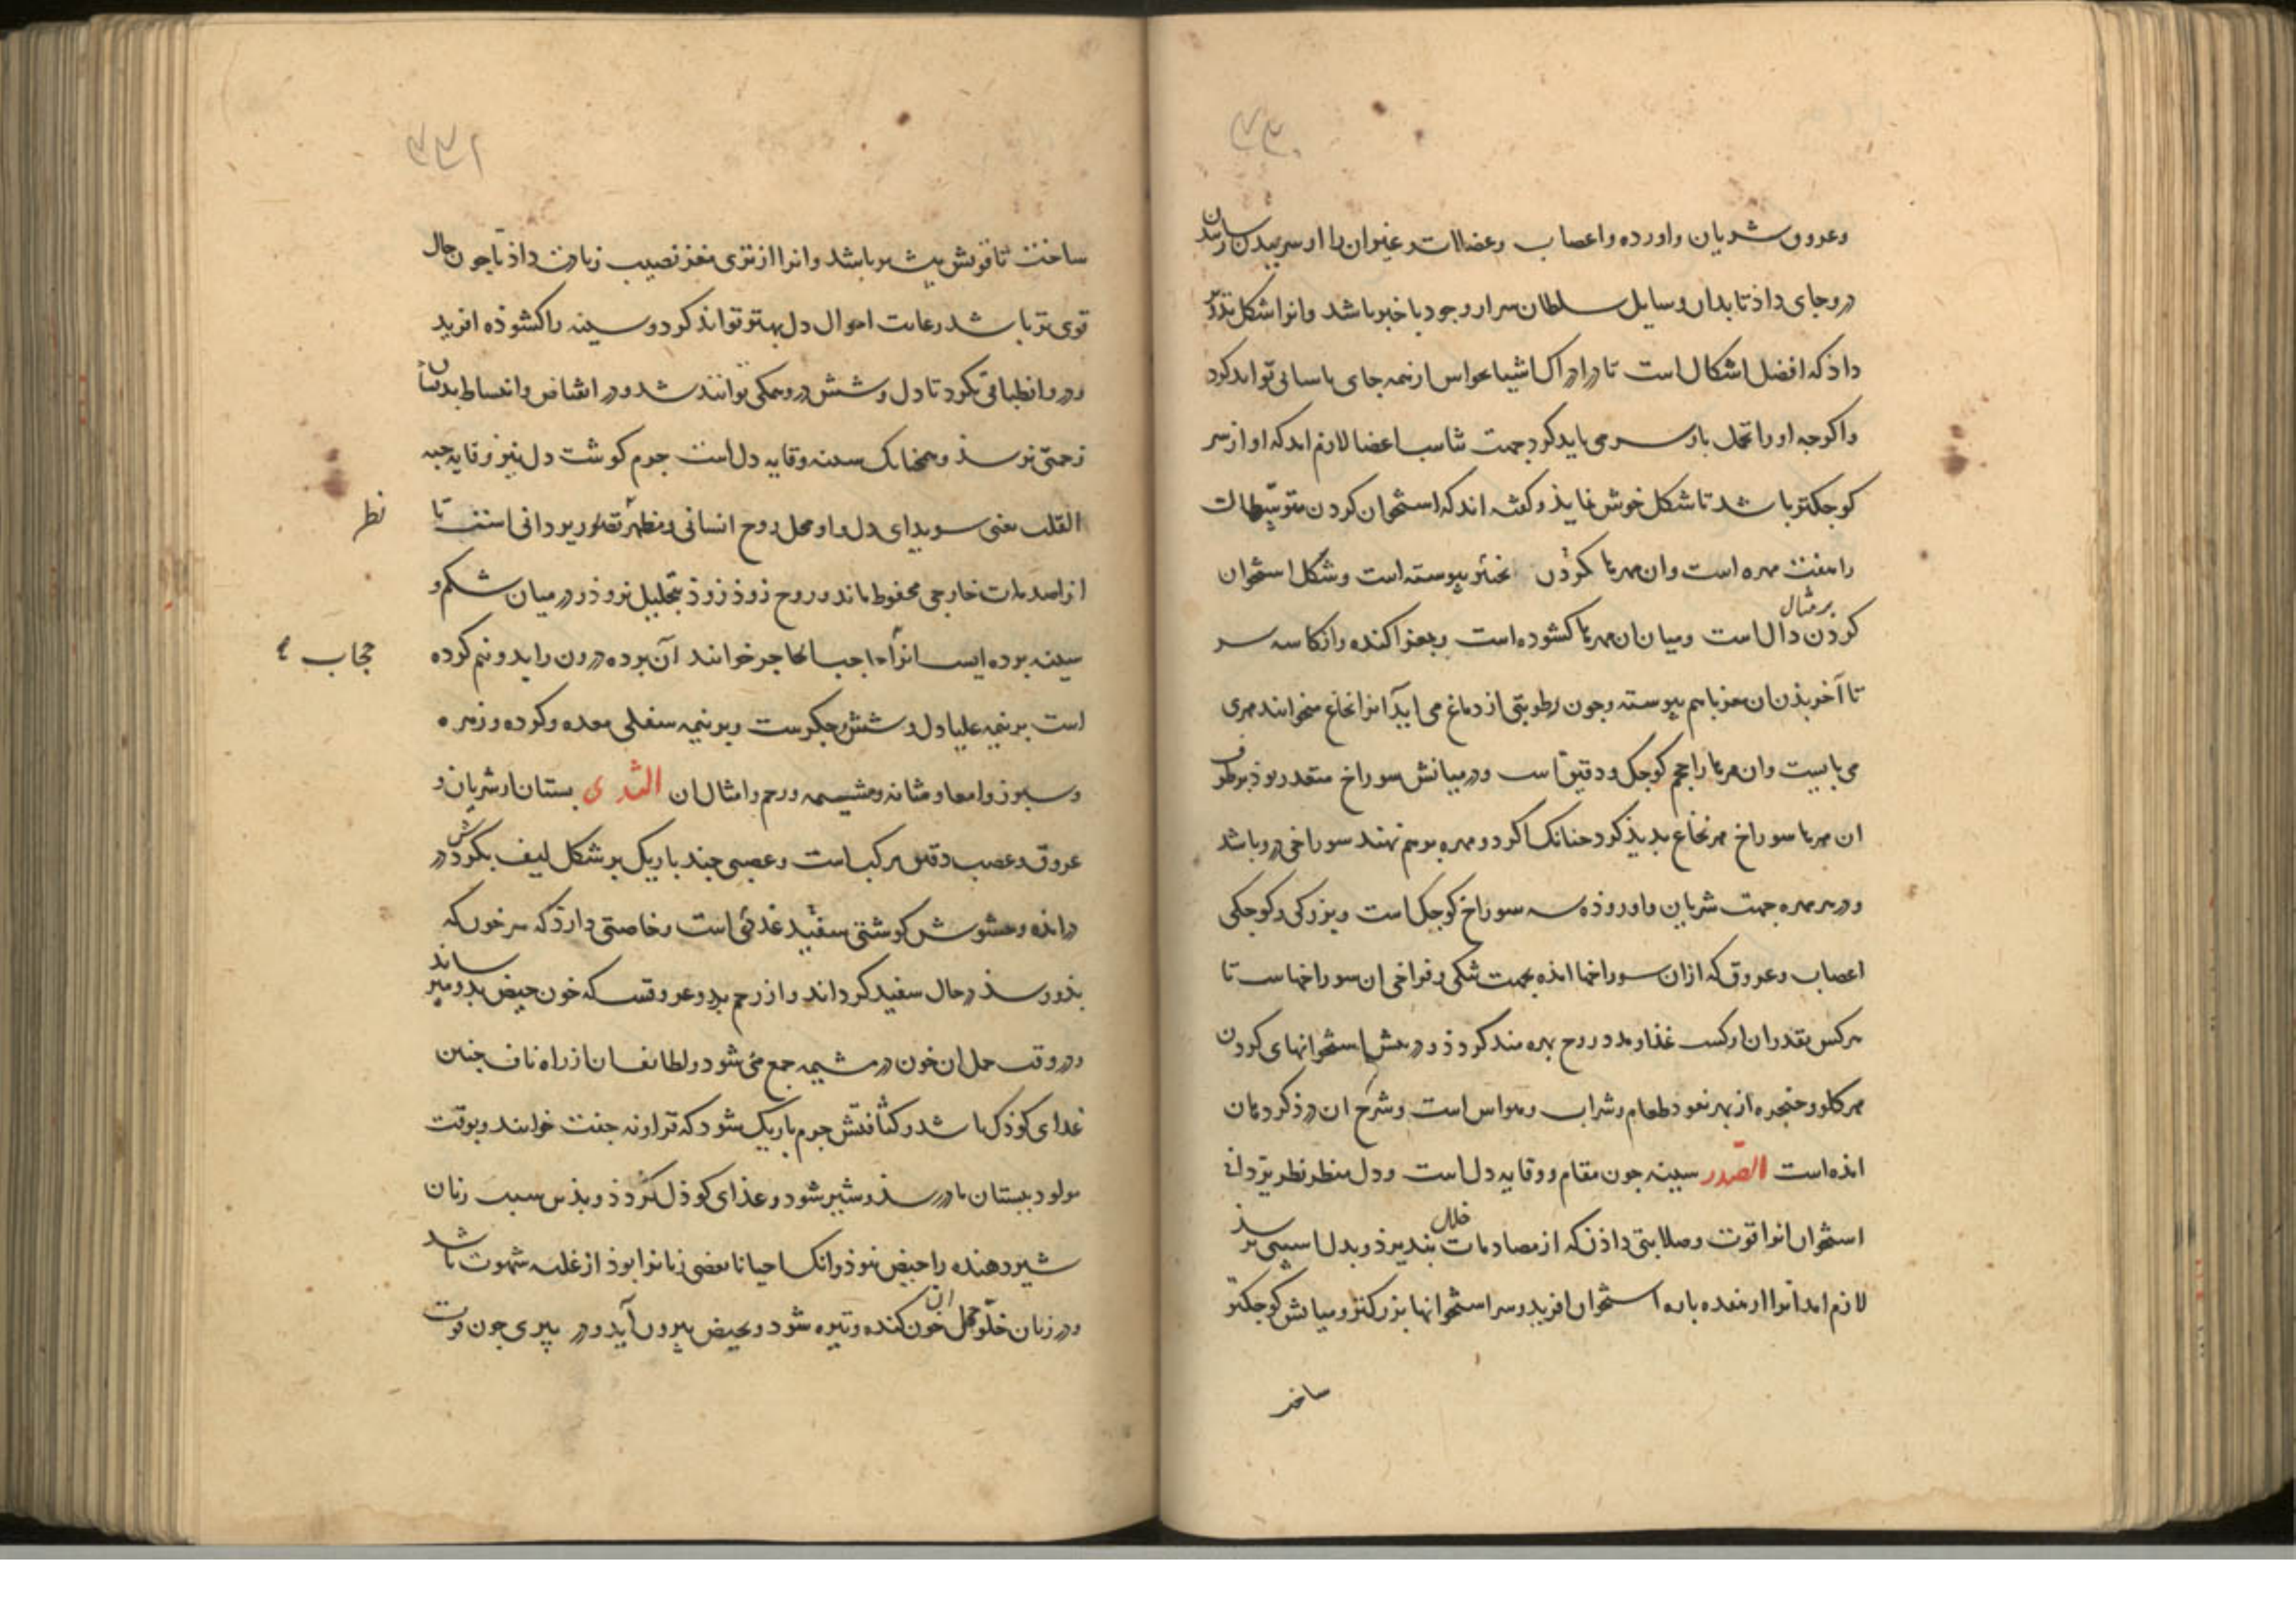 وعروق شریان واورده واعصاب وعضلات وغیران را از سر ببدن رسانند
در وجای داذ تا بدان وسایل سلطان سرا وجود باخبر باشد وانرا شکل تدویر
داذ که افضل اشکال است تا در ادراک اشیا بحواس از نمه جای باسانی تواند کرد
واکرجه اورا تحمل بار سر می باید کرد جهت تناسب اعضا لازم امد که او از سر
کوجکتر باشد تا شکل خوش نماید و کفته اند که استخوان کردن متوسطات
را هفت مهره است وان مهرها کردن پیوسته است وشکل استخوان
کردن بر مثال دال است ومیان ان مهرها کشوده است وبمغز اکنده واز کاسه سر
تا آخر بذن ان مغز باهم پیوسته وجون رطوبتی از دماغ می اید آنرا نخاع میخوانند مهری
می بایست وان مهرها را حجم کوجک ودقیق است ودر میانش سوراخ متعذر بوذ بر طرف
ان مهرها سوراخ مهر نخاع بدید کرد جنانک اکر دو مهره بر هم نهند سوراخی در و باشد
ودر هر مهره جهت شریان واورده سه سوراخ کوجک است وبزرکی وکوجکی
اعصاب وعروق که ازان سوراخها امذه بجهت تنکی وفراخی ان سوراخهاست تا
هر کس بقدر ان از کسب غذا ومدد روح بهره مند کردذ ودر پیش استخوانهای کردن
مهر کلو وحنجره از بهر نفوذ طعام وشراب وهواس است وشرح ان در ذکر دهان
امذه است الصدر سینه جون مقام ووقایه دل است ودل منظر نظر یزدانی
استخوان انرا قوت وصلابتی داذ که از مصادمات خلل نبدیرذ وبدل اسیبی نرسذ
لازم امد انرا از هفده باره استخوان افرید وسر استخوانها بزرکتر ومیانش کوجکتر
ساخت
ساخت تا قوتش بیشتر باشد وانرا از تری مغز نصیب زیادت داذ تا جون حال
قوی تر باشد رعایت احوال دل بهتر تواند کرد وسینه را کشوذه افرید
ودر و انطباقی نکرد تا دل وشش در و متمکن توانند شد ودر انقباض وانبساط بدیشان
زحمتی نرسذ وهمجنانک سینه وقایه دل است جرم کوشت دل نیز وقایه حبه
القلب یعنی سویدای دل واو محل روح انسانی ومظهر نور یزدانی است تا
نظر
از صدمات خارجی محفوظ ماند وروح زوذ زوذ بتحلیل نروذ ودر میان شکم و
سینه برده ایست انرا حجاب حاجز خوانند آن برده درون را بدو نیم کرده
حجاب
است بر نیمه علیا دل وشش وجکرست وبر نیمه سفلی معده وکرده وزهره
وسبرز وامعا ومثانه ومشیمه ورحم وامثال ان الثدی بستان از شریان و
عروق وعصب دقیق مرکب است وعصبی جند باریک بر شکل لیف بکردش در
درامذه وحشوش کوشتی سفید غددی است وخاصتی دارذ که هر خون که
بذو رسذ در حال سفید کرداند واز رحم بدو عروقست که خون حیض بدو میرساند
ودر وقت حمل ان خون در مشیمه جمع می شود ولطایف ان از راه ناف جنین
غدای کوذک باشد وکثافتش جرم باریک شود که قرارونه جفت خوانند وبوقت
مولود ببستان مادر رسذ وشیر شود وغذای کوذک کردذ وبذین سبب زنان
شیر دهنده را حیض نبوذ وانک احیانا بعضی زنانرا بوذ از غلبه شهوت باشد
ودر زمان خلو حمل ان خون کنده وتیره شود وبحیض بیرون آید ودر بیری جون قوت